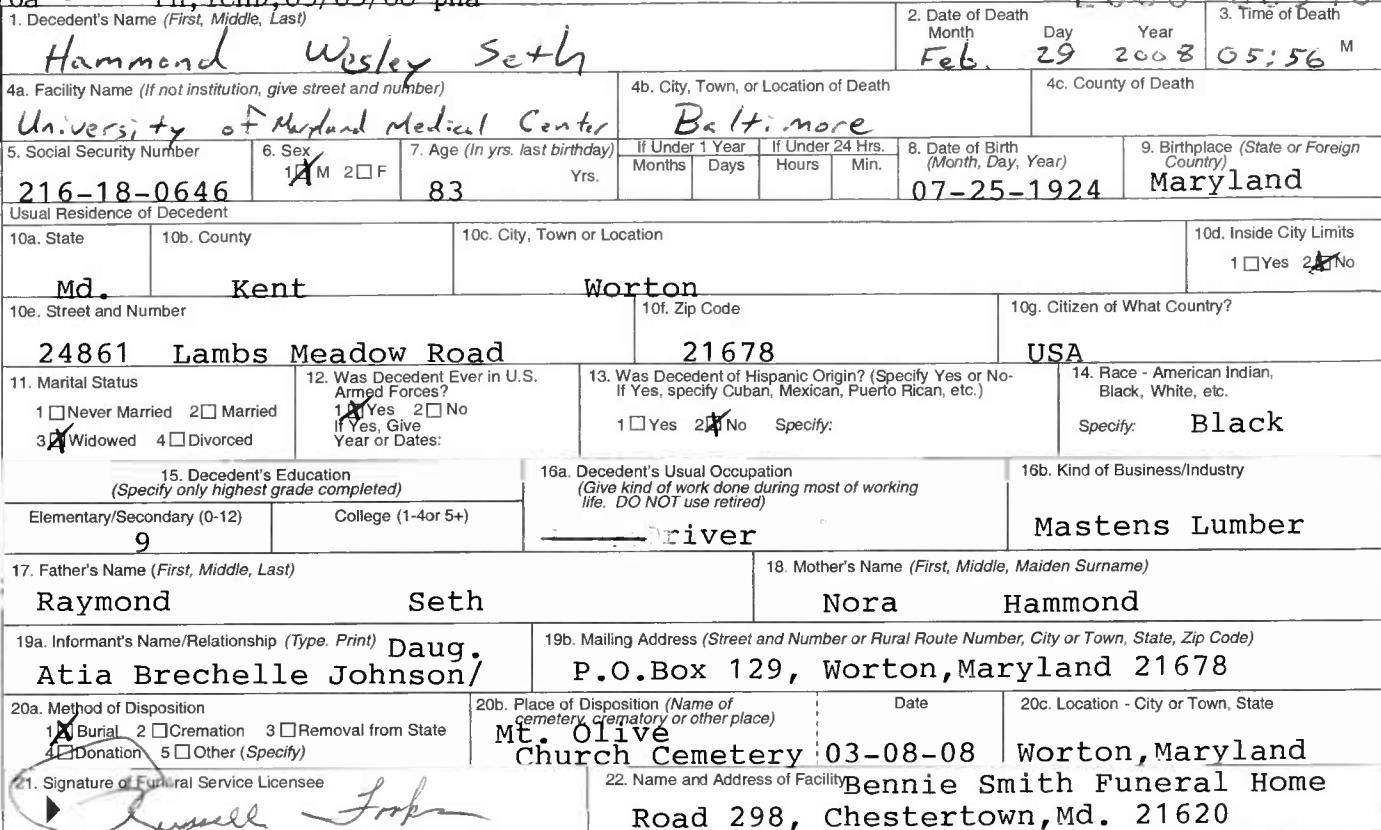 1. Decedent's Name (First, Middle, Last)
Hammond Wesley Seth
2. Date of Death
Month Day Year
Feb. 29 2008
3. Time of Death
05:56 M
4a. Facility Name (If not institution, give street and number)
University of Maryland Medical Center
4b. City, Town, or Location of Death
Baltimore
4c. County of Death
5. Social Security Number
216-18-0646
6. Sex
1 M 2 F
7. Age (In yrs. last birthday)
Yrs.
83
If Under 1 Year
Months Days
If Under 24 Hrs.
Hours Min.
8. Date of Birth
(Month, Day, Year)
07-25-1924
9. Birthplace (State or Foreign
Country)
Maryland
Usual Residence of Decedent
10a. State
Md.
10b. County
Kent
10c. City, Town or Location
Worton
10d. Inside City Limits
1 Yes 2 No
10e. Street and Number
24861 Lambs Meadow Road
10f. Zip Code
21678
10g. Citizen of What Country?
USA
11. Marital Status
1 Never Married 2 Married
3 Widowed 4 Divorced
12. Was Decedent Ever in U.S.
Armed Forces?
1 Yes 2 No
If Yes, Give
Year or Dates:
13. Was Decedent of Hispanic Origin? (Specify Yes or No-
If Yes, specify Cuban, Mexican, Puerto Rican, etc.)
1 Yes 2 No Specify:
14. Race - American Indian,
Black, White, etc.
Specify: Black
15. Decedent's Education
(Specify only highest grade completed)
Elementary/Secondary (0-12)
9
College (1-4or 5+)
16a. Decedent's Usual Occupation
(Give kind of work done during most of working
life. DO NOT use retired)
river
16b. Kind of Business/Industry
Mastens Lumber
17. Father's Name (First, Middle, Last)
Raymond Seth
18. Mother's Name (First, Middle, Maiden Surname)
Nora Hammond
19a. Informant's Name/Relationship (Type. Print) Daug.
Atia Brechelle Johnson/
19b. Mailing Address (Street and Number or Rural Route Number, City or Town, State, Zip Code)
P.O.Box 129, Worton,Maryland 21678
20a. Method of Disposition
1 Burial 2 Cremation 3 Removal from State
4 Donation 5 Other (Specify)
20b. Place of Disposition (Name of
cemetery, crematory or other place)
Mt. Olive
Church Cemetery
Date
03-08-08
20c. Location - City or Town, State
Worton,Maryland
21. Signature of Funeral Service Licensee
Russell
22. Name and Address of Facility Bennie Smith Funeral Home
Road 298, Chestertown,Md. 21620